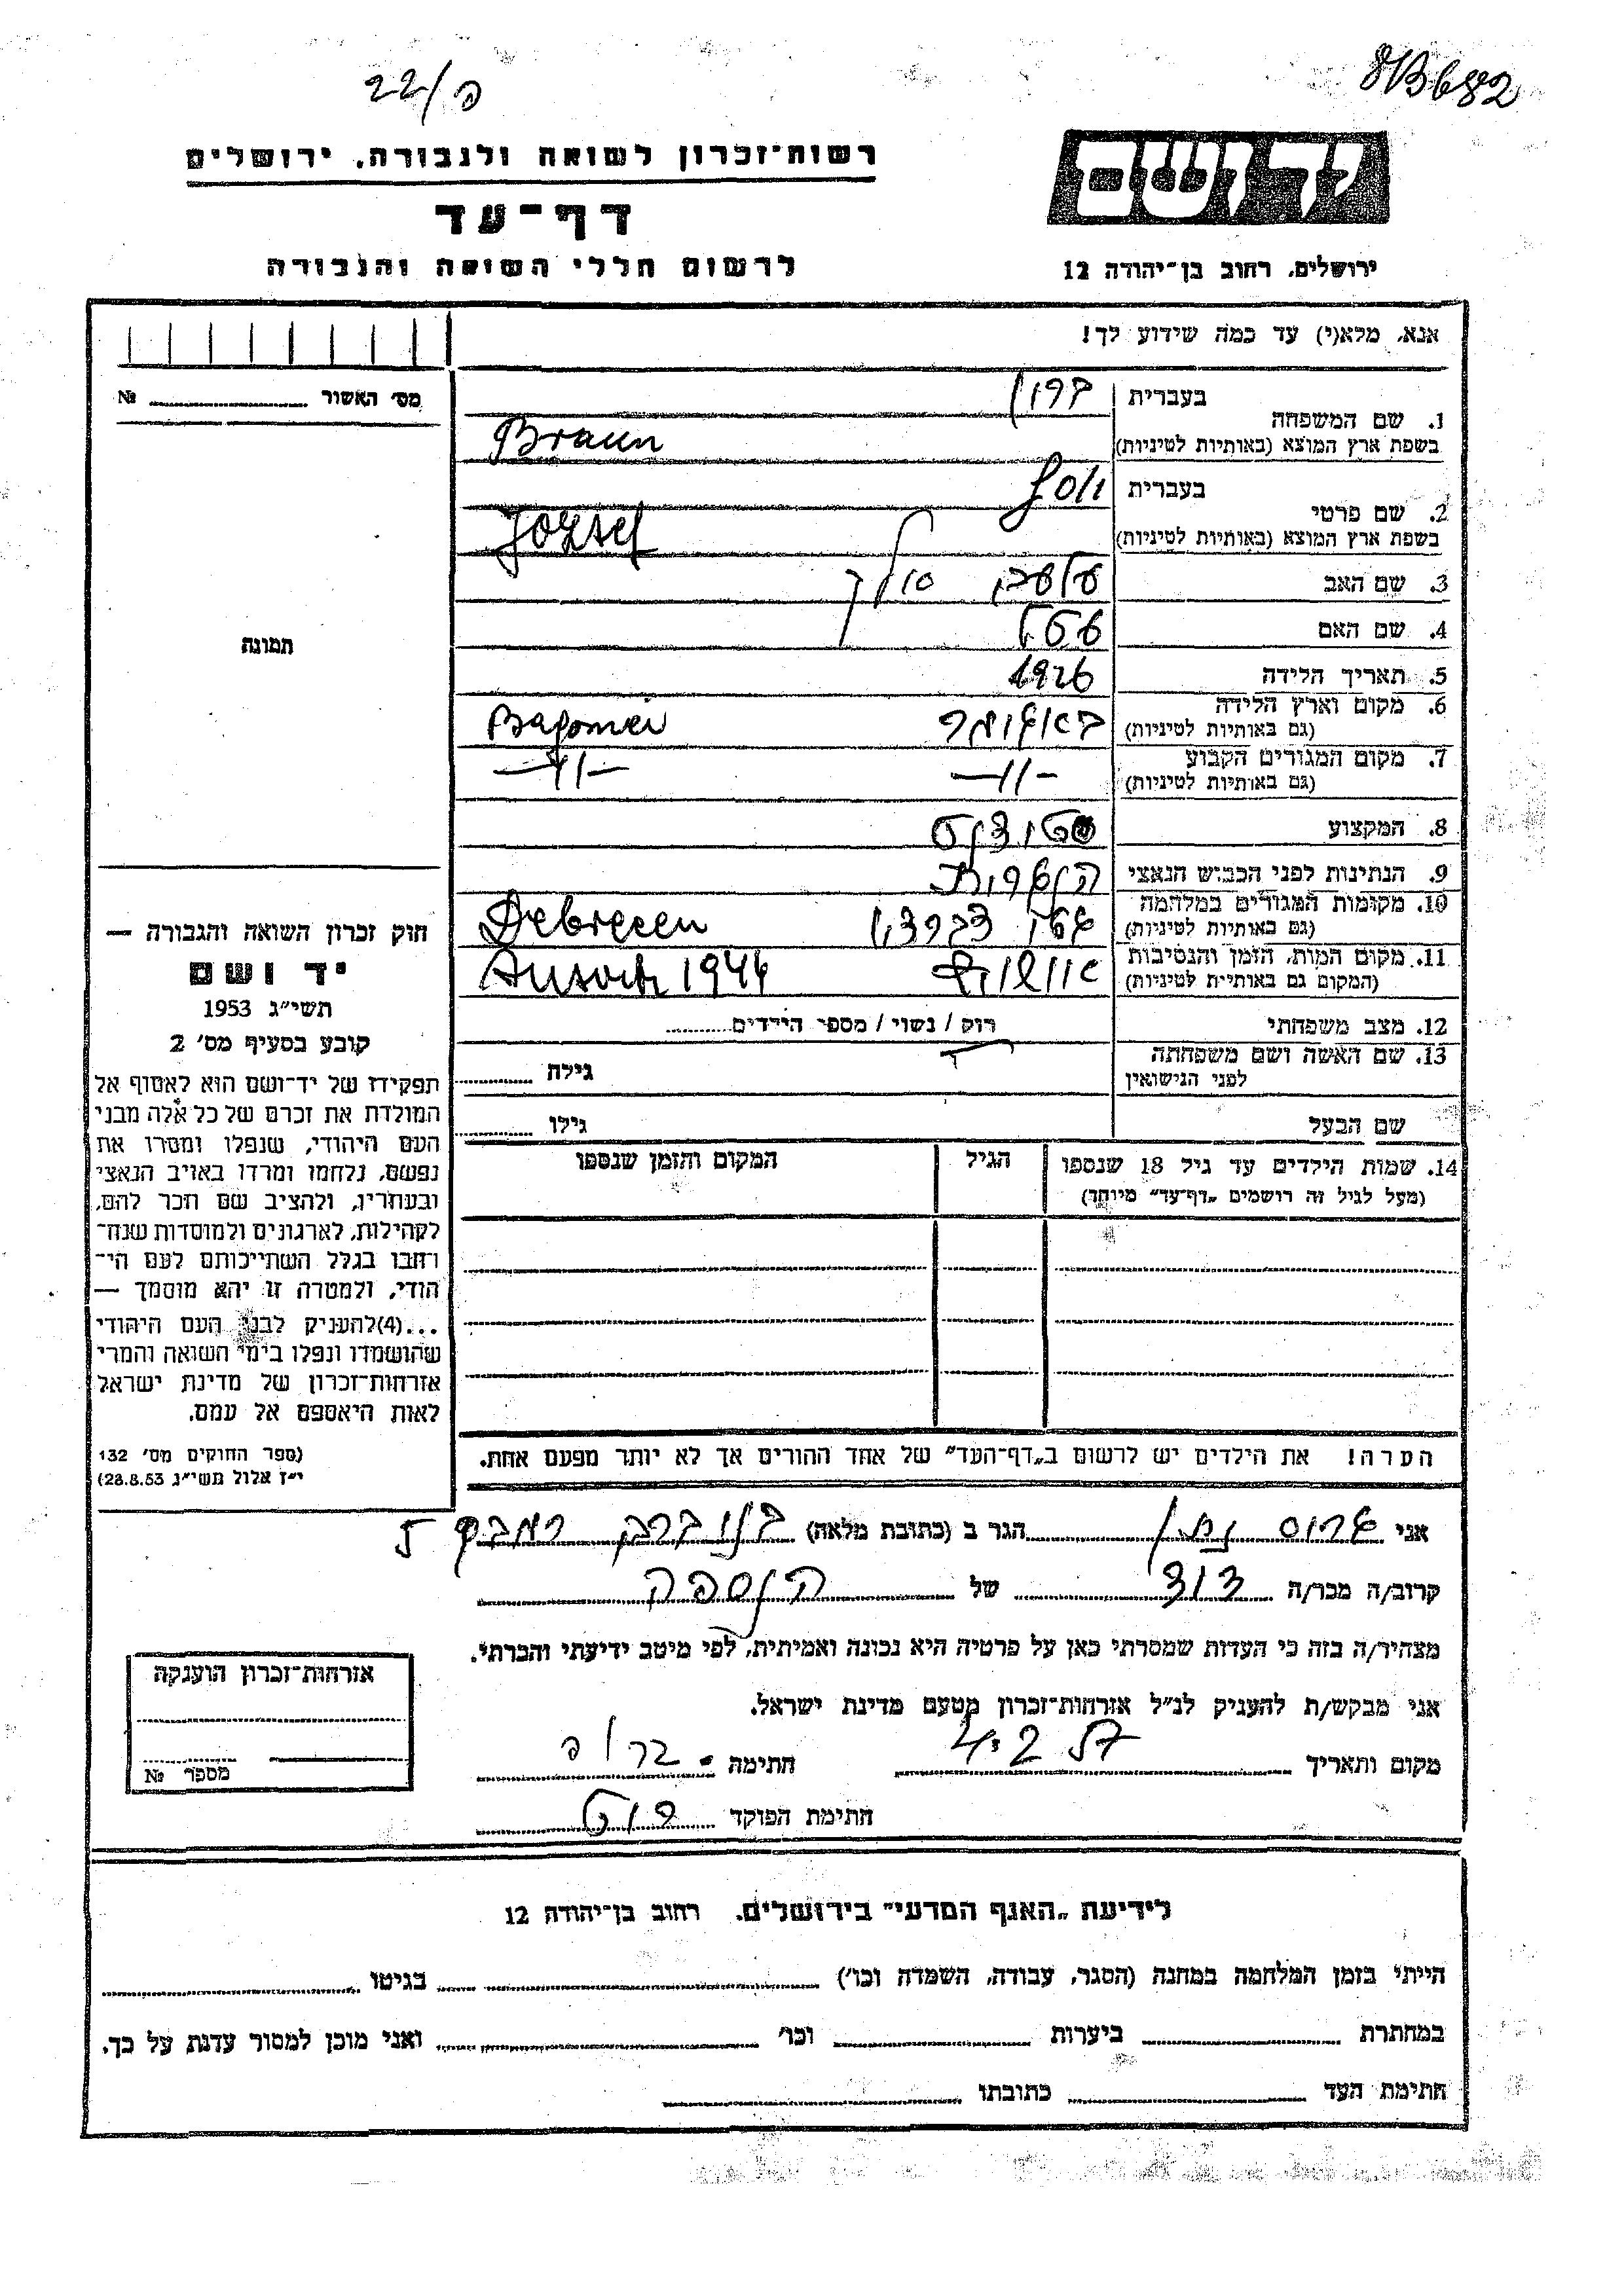 8B682
22/פ
יד ושם
רשות־זכרון לשואה ולגבורה, ירושלים
דף־עד
לרשום חללי השואה והגבורה
ירושלים, רחוב בן־יהודה 12
אנא, מלא(י) עד כמה שידוע לך!
מס׳ האשור № 
1. שם המשפחה
בעברית ברון
בשפת ארץ המוצא (באותיות לטיניות) Braun
2. שם פרטי
בעברית יוסף
בשפת ארץ המוצא (באותיות לטיניות) József
3. שם האב
4. שם האם
5. תאריך הלידה 1926
6. מקום וארץ הלידה
(גם באותיות לטיניות)
7. מקום המגורים הקבוע —11— —11—
(גם באותיות לטיניות)
8. המקצוע סטודנט
9. הנתינות לפני הכבוש הנאצי הונגרית
10. מקומות המגורים במלחמה גטו דברצן Debrecen
(גם באותיות לטיניות)
11. מקום המות, הזמן והנסיבות אושויץ 1944
(המקום גם באותיות לטיניות)
12. מצב משפחתי רוק / נשוי / מספר הילדים
13. שם האשה ושם משפחתה
לפני הנישואין גילה
שם הבעל גילו
14. שמות הילדים עד גיל 18 שנספו הגיל המקום והזמן שנספו
(מעל לגיל זה רושמים „דף־עד” מיוחד)
הערה! את הילדים יש לרשום ב„דף־העד” של אחד ההורים אך לא יותר מפעם אחת.
תמונה
חוק זכרון השואה והגבורה —
יד ושם
תשי״ג 1953
קובע בסעיף מס׳ 2
תפקידו של יד־ושם הוא לאסוף אל
המולדת את זכרם של כל אלה מבני
העם היהודי, שנפלו ומסרו את
נפשם, נלחמו ומרדו באויב הנאצי
ובעוזריו, ולהציב שם וזכר להם,
לקהילות, לארגונים ולמוסדות שנח־
רבו בגלל השתייכותם לעם הי־
הודי, ולמטרה זו יהא מוסמך —
...(4)להעניק לבני העם היהודי
שהושמדו ונפלו בימי השואה והמרי
אזרחות־זכרון של מדינת ישראל
לאות היאספם אל עמם.
(ספר החוקים מס׳ 132
י״ז אלול תשי״ג 28.8.53)
אני הגר ב (כתובת מלאה)
קרוב/ה מכר/ה דוד של הנספה
מצהיר/ה בזה כי העדות שמסרתי כאן על פרטיה היא נכונה ואמיתית, לפי מיטב ידיעתי והכרתי.
אני מבקש/ת להעניק לנ״ל אזרחות־זכרון מטעם מדינת ישראל.
מקום ותאריך חתימה
חתימת הפוקד
אזרחות־זכרון הוענקה
מספר №
לידיעת „האגף המדעי” בירושלים, רחוב בן־יהודה 12
הייתי בזמן המלחמה במחנה (הסגר, עבודה, השמדה וכו׳) בגיטו
במחתרת ביערות וכו׳ ואני מוכן למסור עדות על כך.
חתימת העד כתובתו